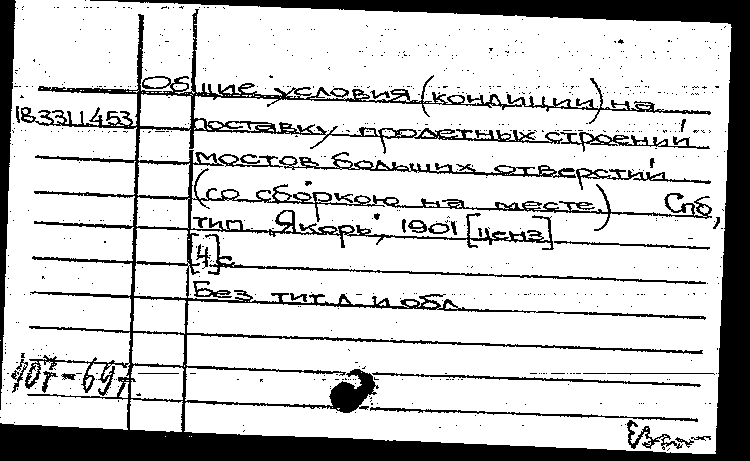 Общие условия (кондиции) на
18.33.11.453
поставку пролетных строений
мостов больших отверстий
(со сборкою на месте.) Спб,
тип. "Якорь", 1901 [ценз]
[4]с.
Без тит. л. и обл.
407-697